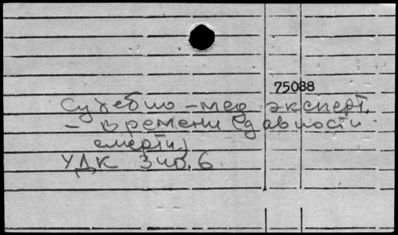 75088
Судебно-мед. эксперт.
- времени (давности
смерти)
УДК 340.6